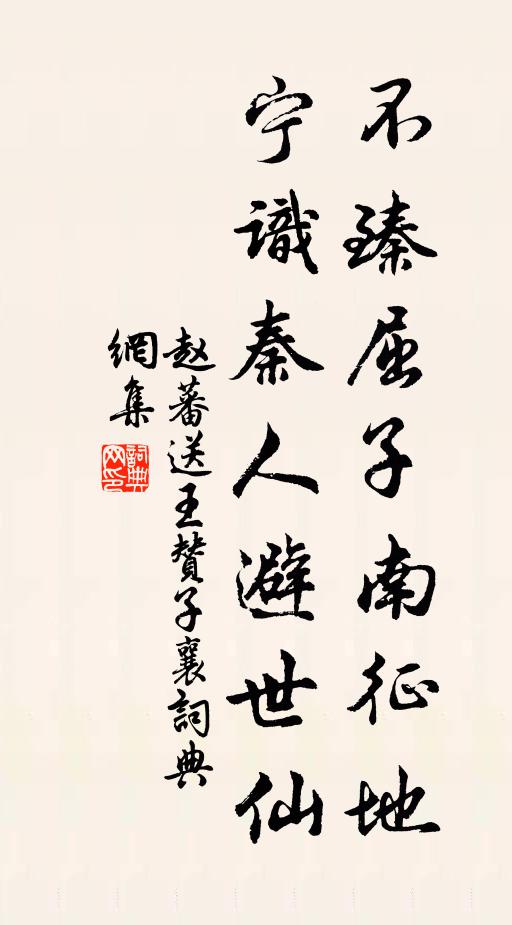 不臻屈子南征地
宁識秦人避世仙
赵蕃送王赞子襄詞典
網集
詞典
网印